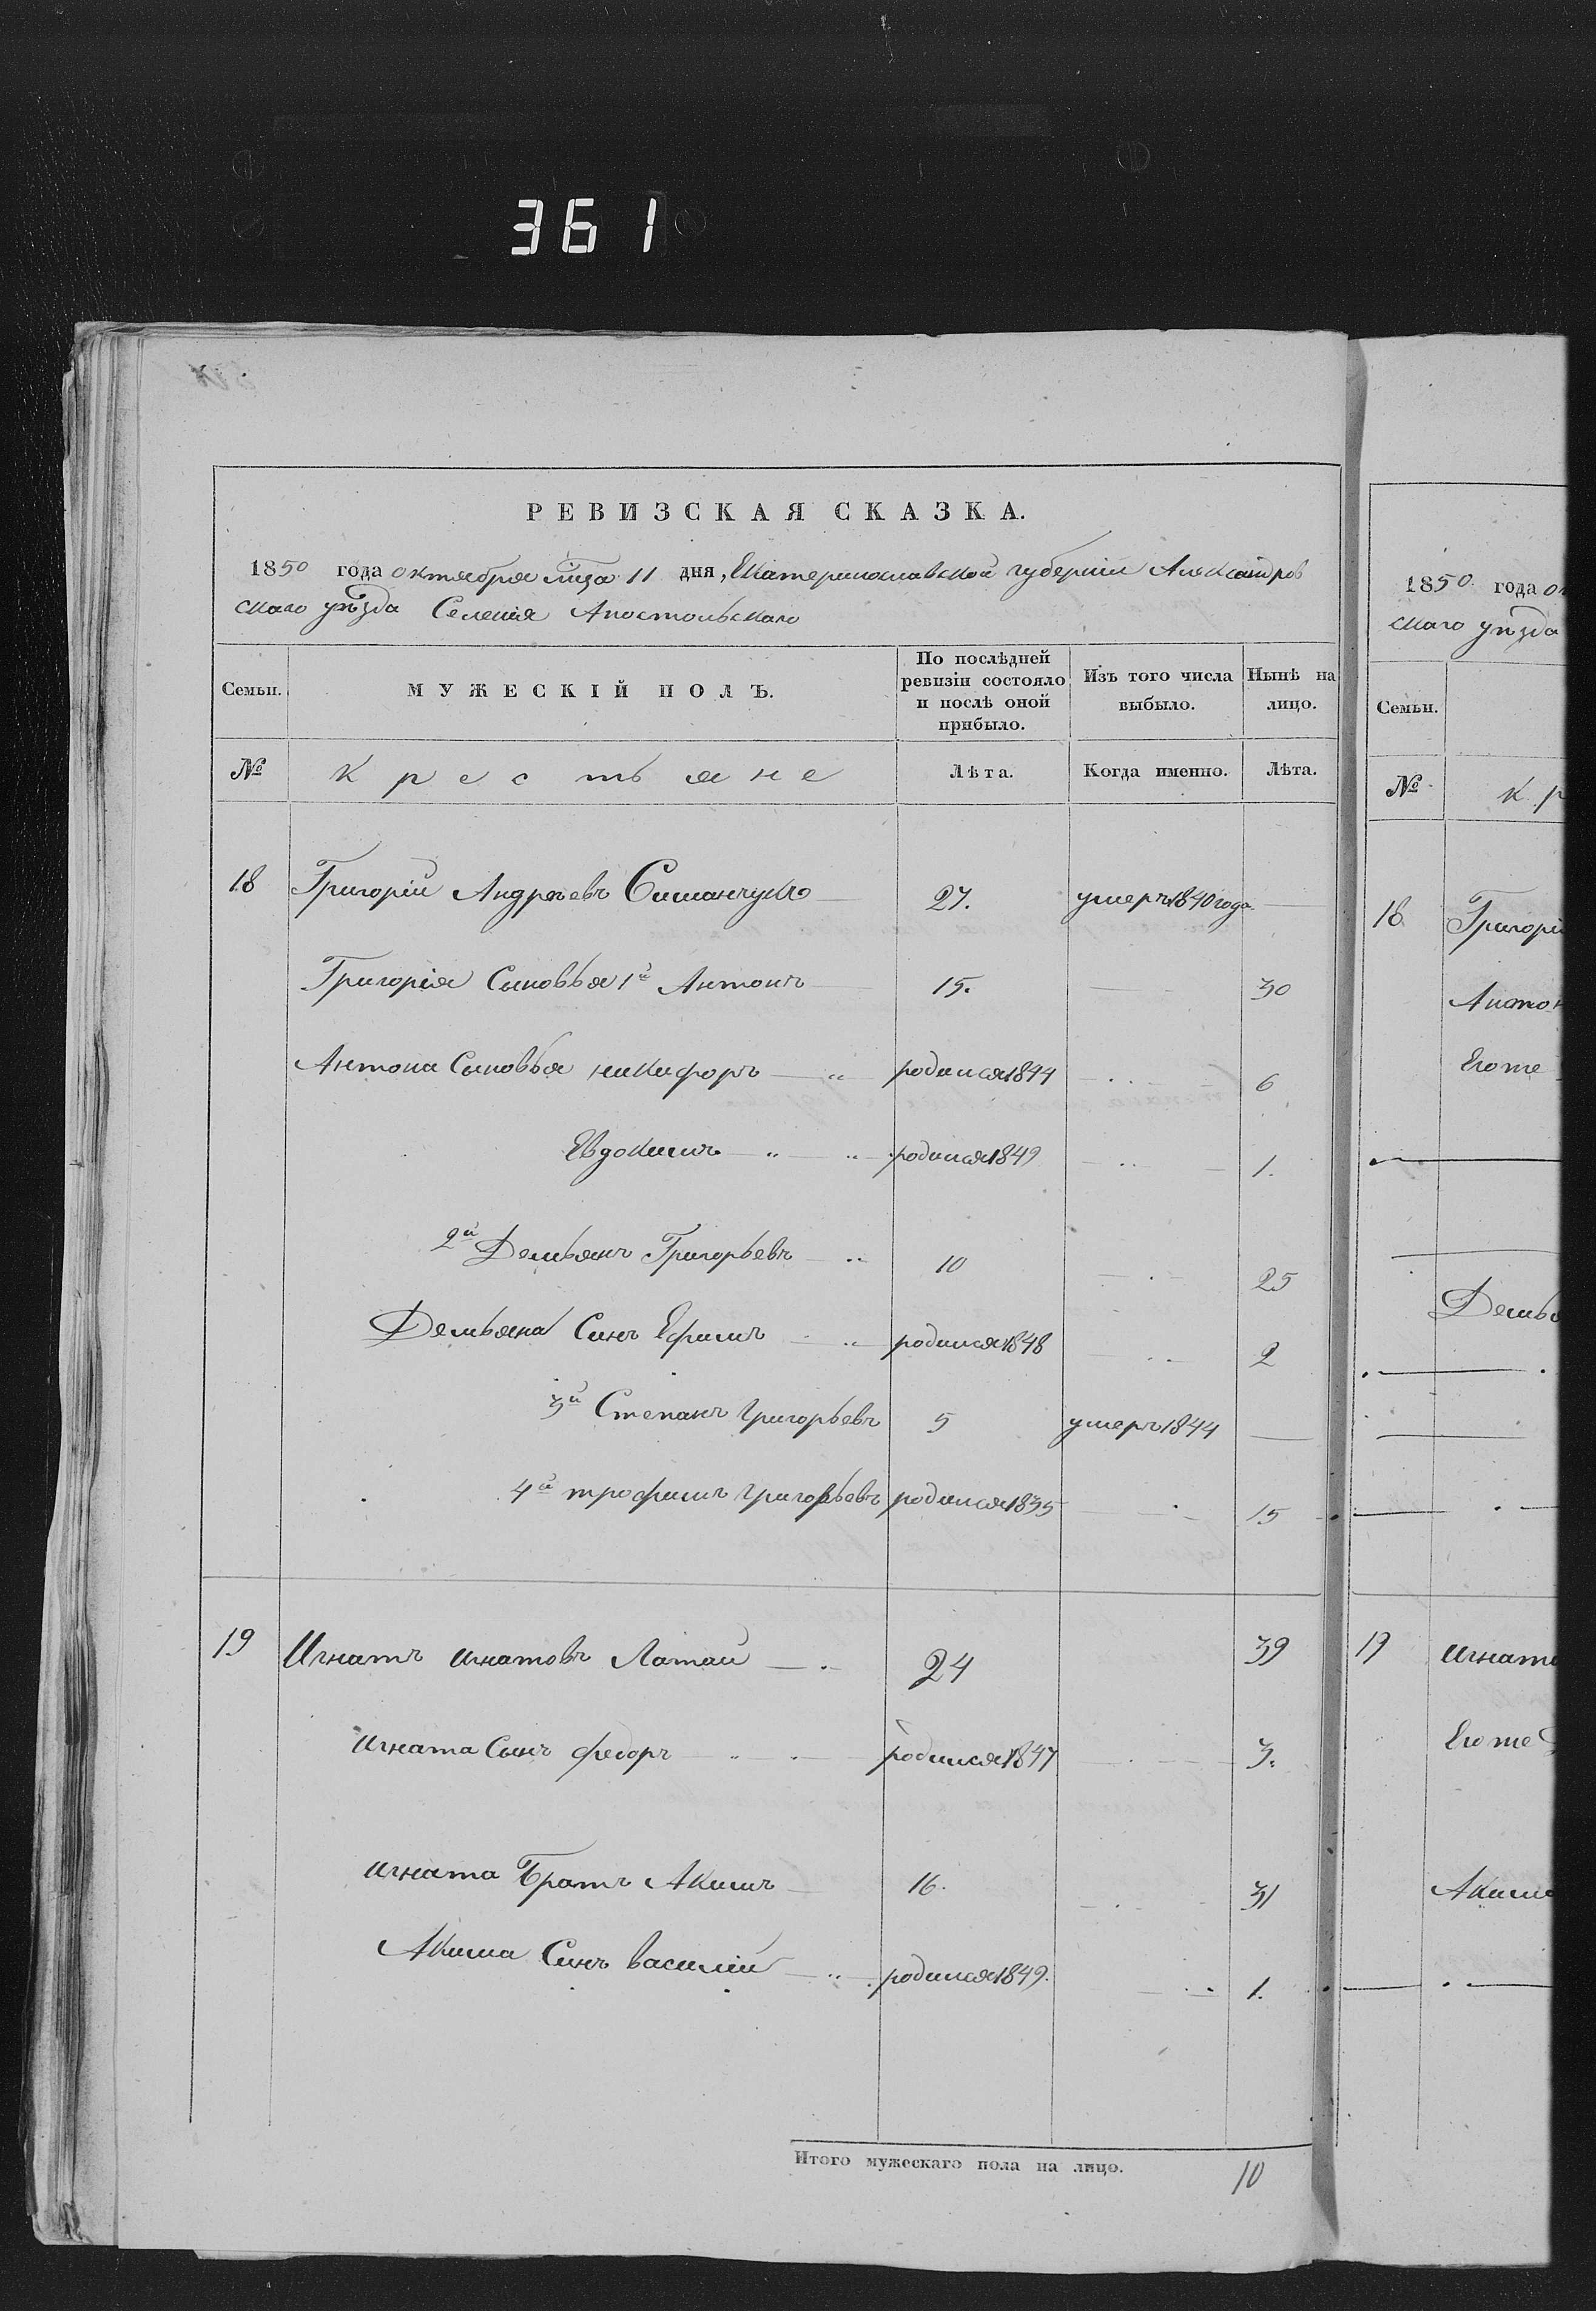 361
РЕВИЗСКАЯ СКАЗКА.
1850 года октября мца 11 дня, Екатеринославской губернии Александров
скаго уѣзда Селенія Апостольскаго
Семьи. МУЖЕСКІЙ ПОЛЪ. По послѣдней ревизіи состояло и послѣ оной прибыло. Изъ того числа выбыло. Нынѣ на лицо.
№ Крестьяне Лѣта. Когда именно. Лѣта.
18 Григорій Андреевъ Симанчукъ 27. умеръ 1840 года
Григорія Сыновья 1й Антонъ 15. 30
Антона Сыновья никифоръ родился 1844 6
Евдокимъ родился 1849 1.
2й Демьянъ Григорьевъ 10 25
Демьяна Сынъ Ефимъ родился 1848 2
3й Степанъ Григорьевъ 5 умеръ 1844
4й трофимъ Григорьевъ родился 1835 15
19 Игнатъ игнатовъ Латай 24 39
игната Сынъ федоръ родился 1847 3.
игната Братъ Акимъ 16. 31
Акима Сынъ василій родился 1849. 1.
Итого мужескаго пола на лицо. 10
1850 года
скаго уѣзда
Семьи.
№ Кр
18
Его же
19
Его же